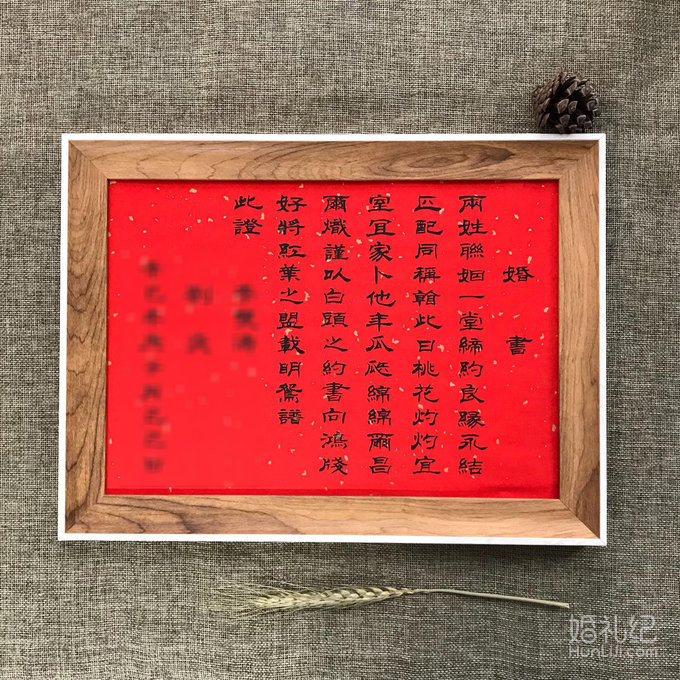 婚書
兩姓聯姻一堂締約良緣永結
匹配同稱翰此日桃花灼灼宜
室宜家卜他年瓜瓞綿綿爾昌
爾熾謹以白頭之約書向鴻牋
好將紅葉之盟載明鴛譜
此證
婚礼纪
HunLiJi.com